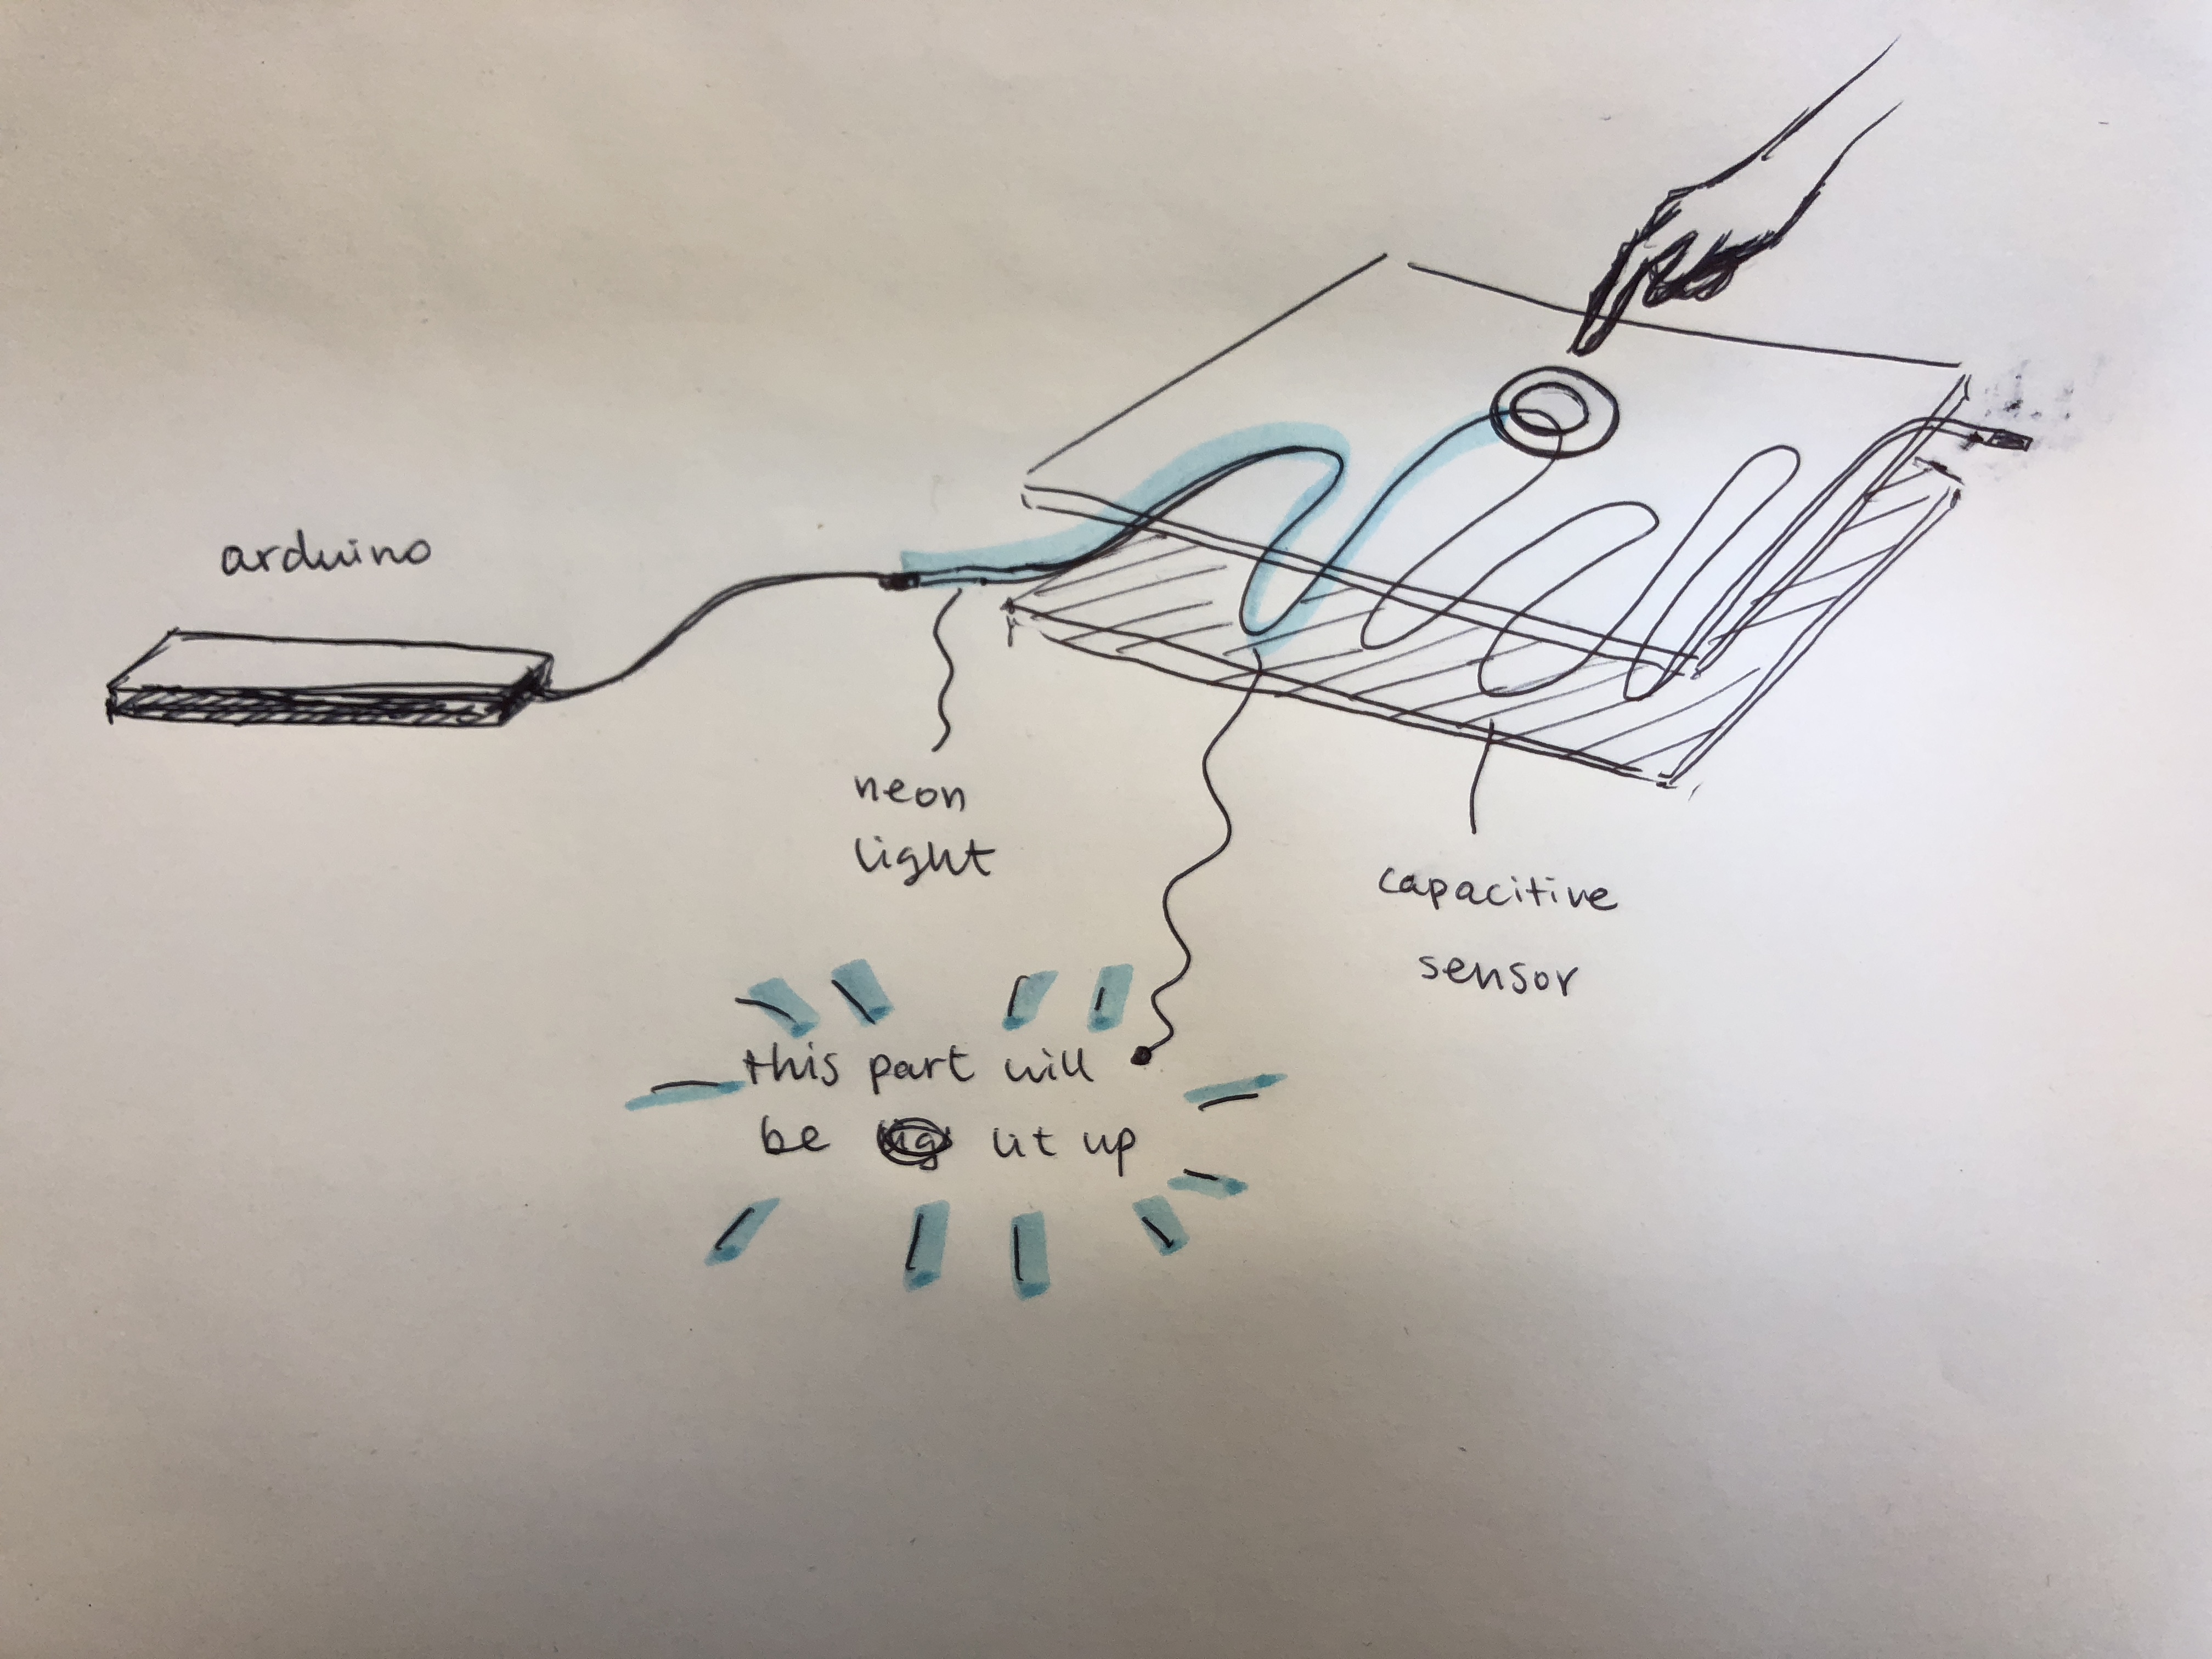 arduino
neon
light
capacitive
sensor
this part will
be lit up